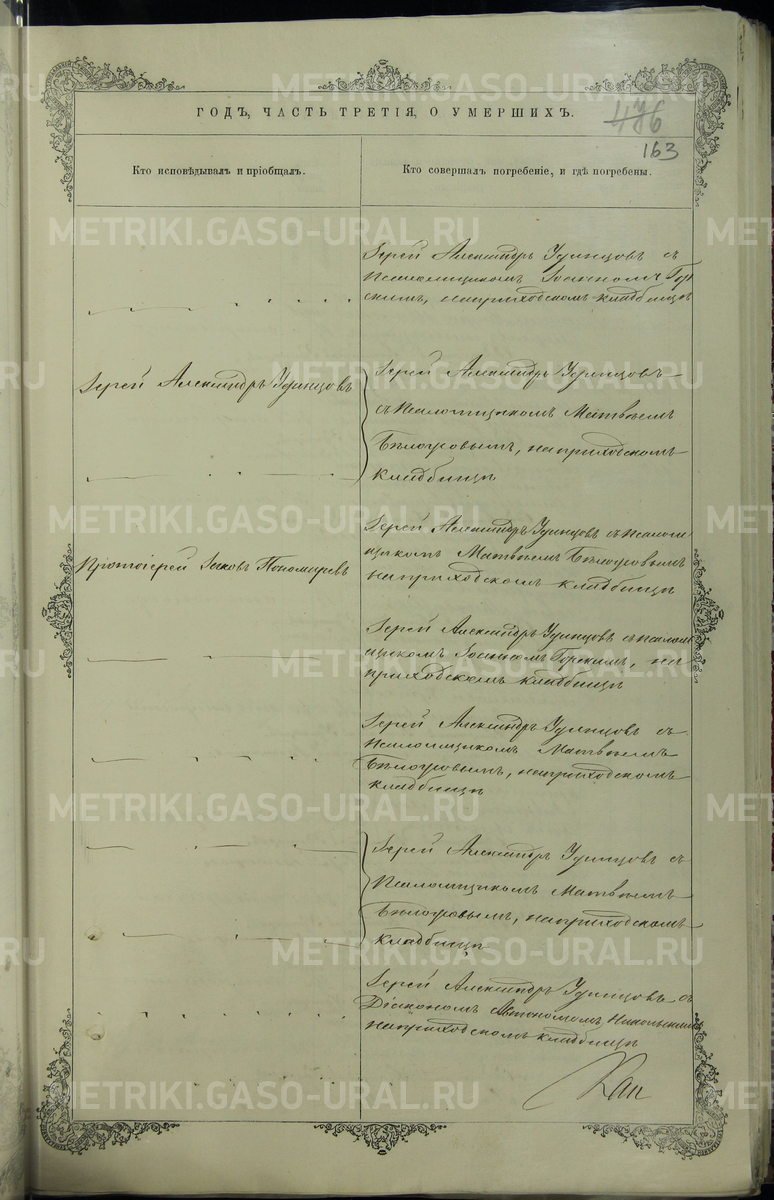 ГОДЪ, ЧАСТЬ ТРЕТІЯ, О УМЕРШИХЪ.
476
163
Кто исповѣдывалъ и пріобщалъ.
Кто совершалъ погребеніе, и гдѣ погребены.
Іерей Александръ Удинцовъ съ
Псаломщикомъ Іоанномъ Гор
скимъ, на приходскомъ кладбищѣ
Іерей Александръ Удинцовъ
Іерей Александръ Удинцовъ
съ Псаломщикомъ Матвѣемъ
Бѣлоусовымъ, на приходскомъ
кладбищѣ
Протоіерей Іаковъ Пономаревъ
Іерей Александръ Удинцовъ съ псалом
щикомъ Матвѣемъ Бѣлоусовымъ
на приходскомъ кладбищѣ
Іерей Александръ Удинцовъ съ псалом
щикомъ Іоанномъ Горскимъ, на
приходскомъ кладбищѣ
Іерей Александръ Удинцовъ съ
Псаломщикомъ Матвѣемъ
Бѣлоусовымъ, на приходскомъ
кладбищѣ
Іерей Александръ Удинцовъ съ
Псаломщикомъ Матвѣемъ
Бѣлоусовымъ, на приходскомъ
кладбищѣ
Іерей Александръ Удинцовъ съ
Діакономъ Автономомъ Никольскимъ
на приходскомъ кладбищѣ
METRIKI.GASO-URAL.RU